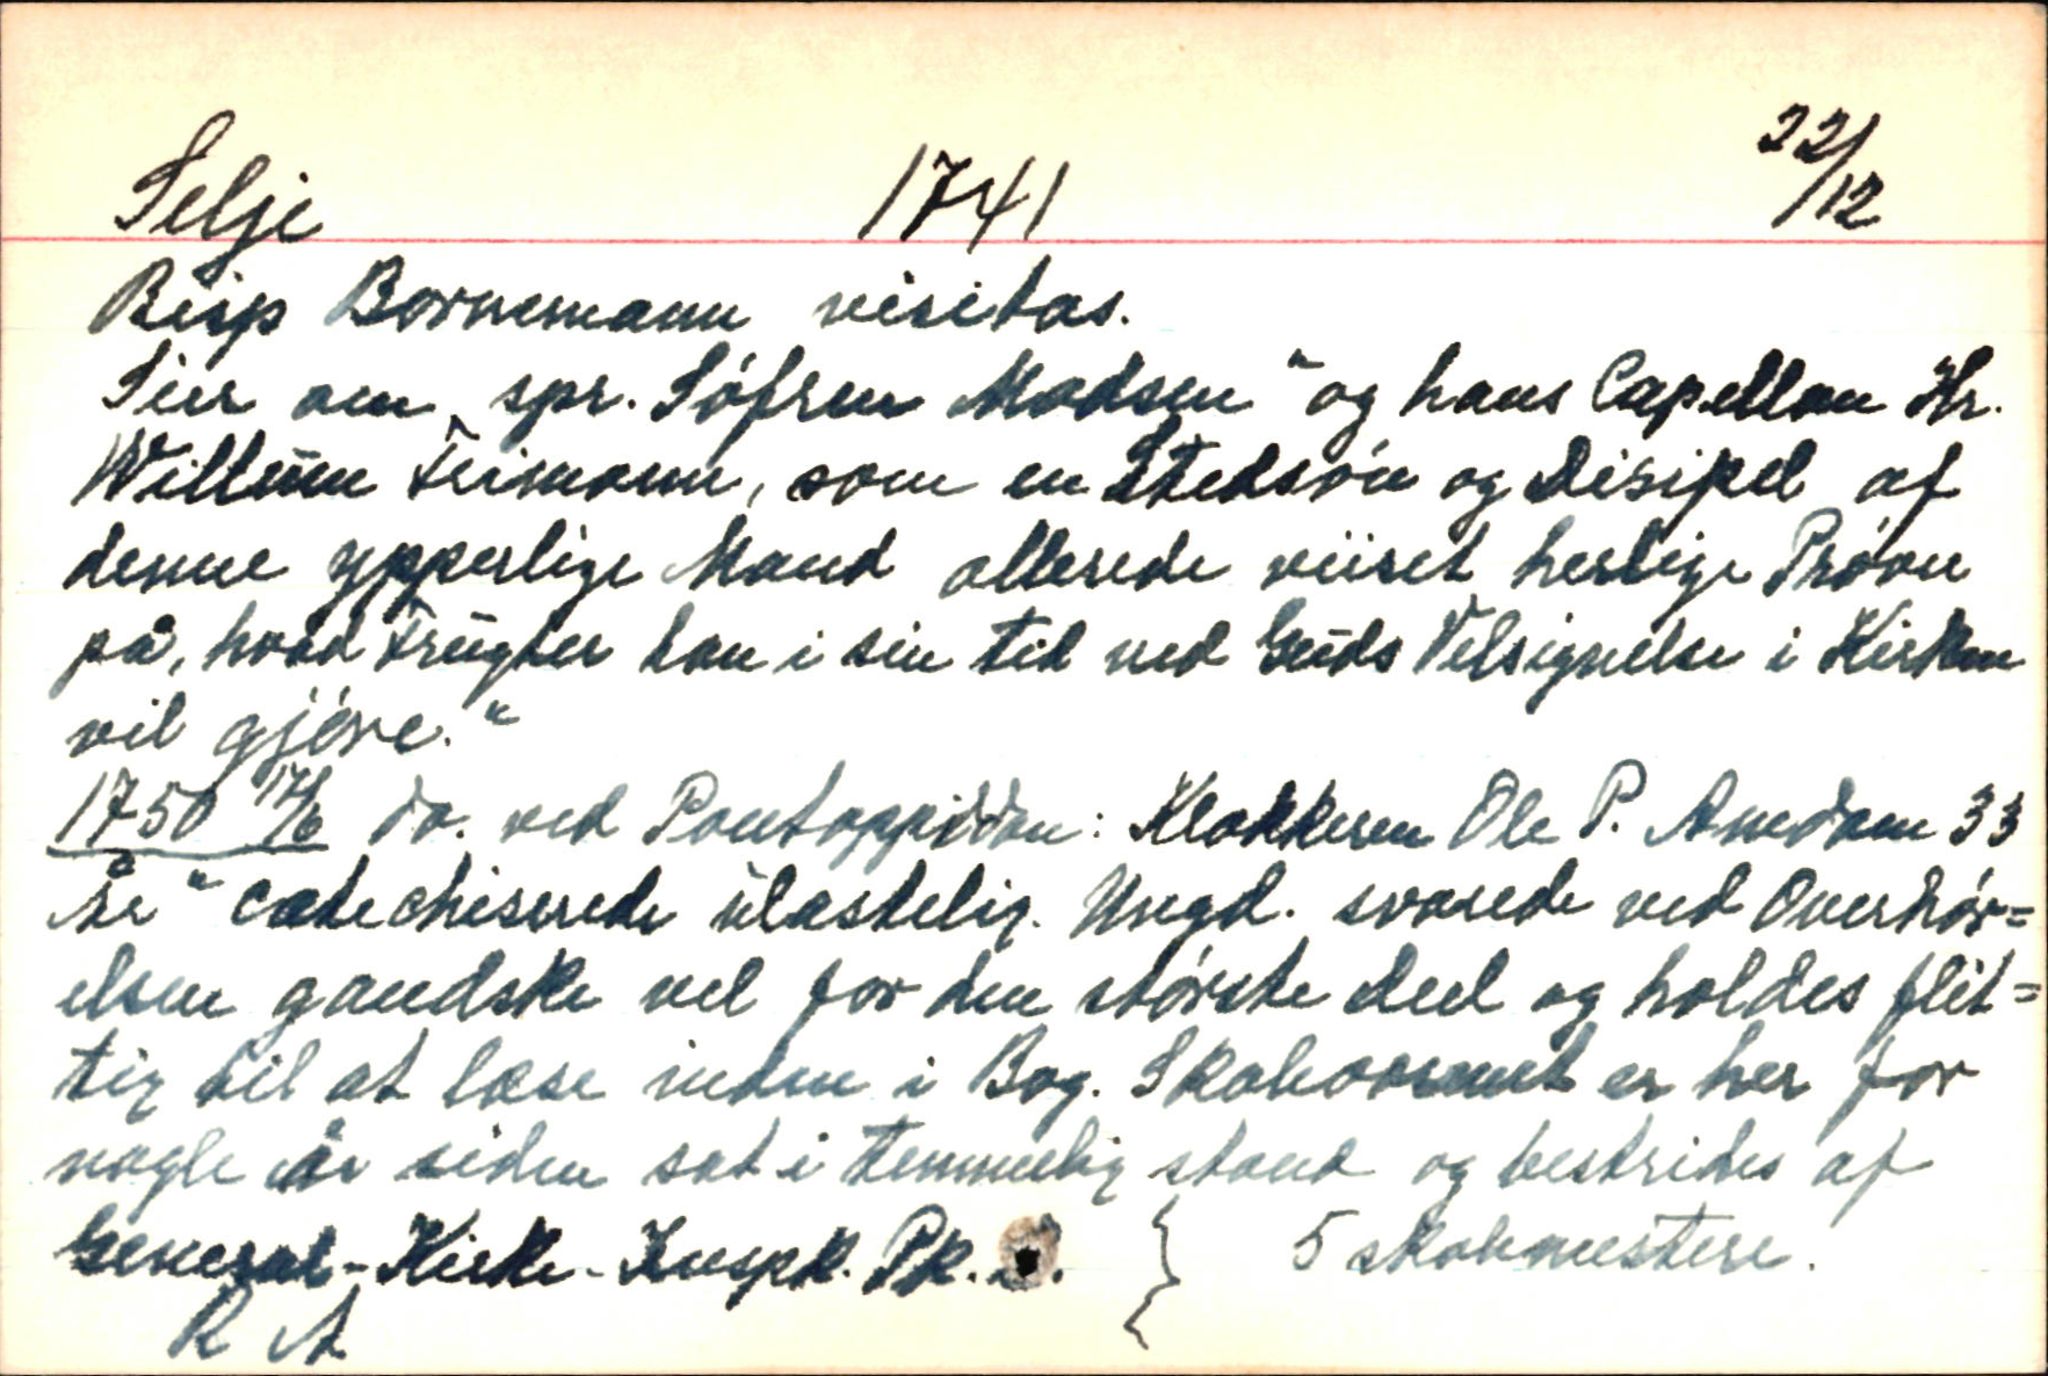 Selje 1741 22/12
Bisp Bornemann visitas.
Sier om spr. Søfren Madsen "og hans Capellan Hr.
Willūm Frimann, som en Stedsøn og Disipel af
denne ypperlige Mand allerede viiset herlige Prøver
på, hvad Frūgter han i sin tid ved Gūds Velsignelse i Kirken
vil gjøre."
1750 17/6 do. ved Pontoppidan: Klokkeren Ole P. Amdam 33
År "catechiserede ūlastelig. Ungd. svarede ved Overhør=
elsen gandske vel for den største Deel og holdes flit=
tig til at læse inden i Bog. Skolevæsenet er her for
nogle år siden sat i temmelig stand og bestrides af
General-Kirke-Inspk. Pk. } 5 skolemestere.
R A